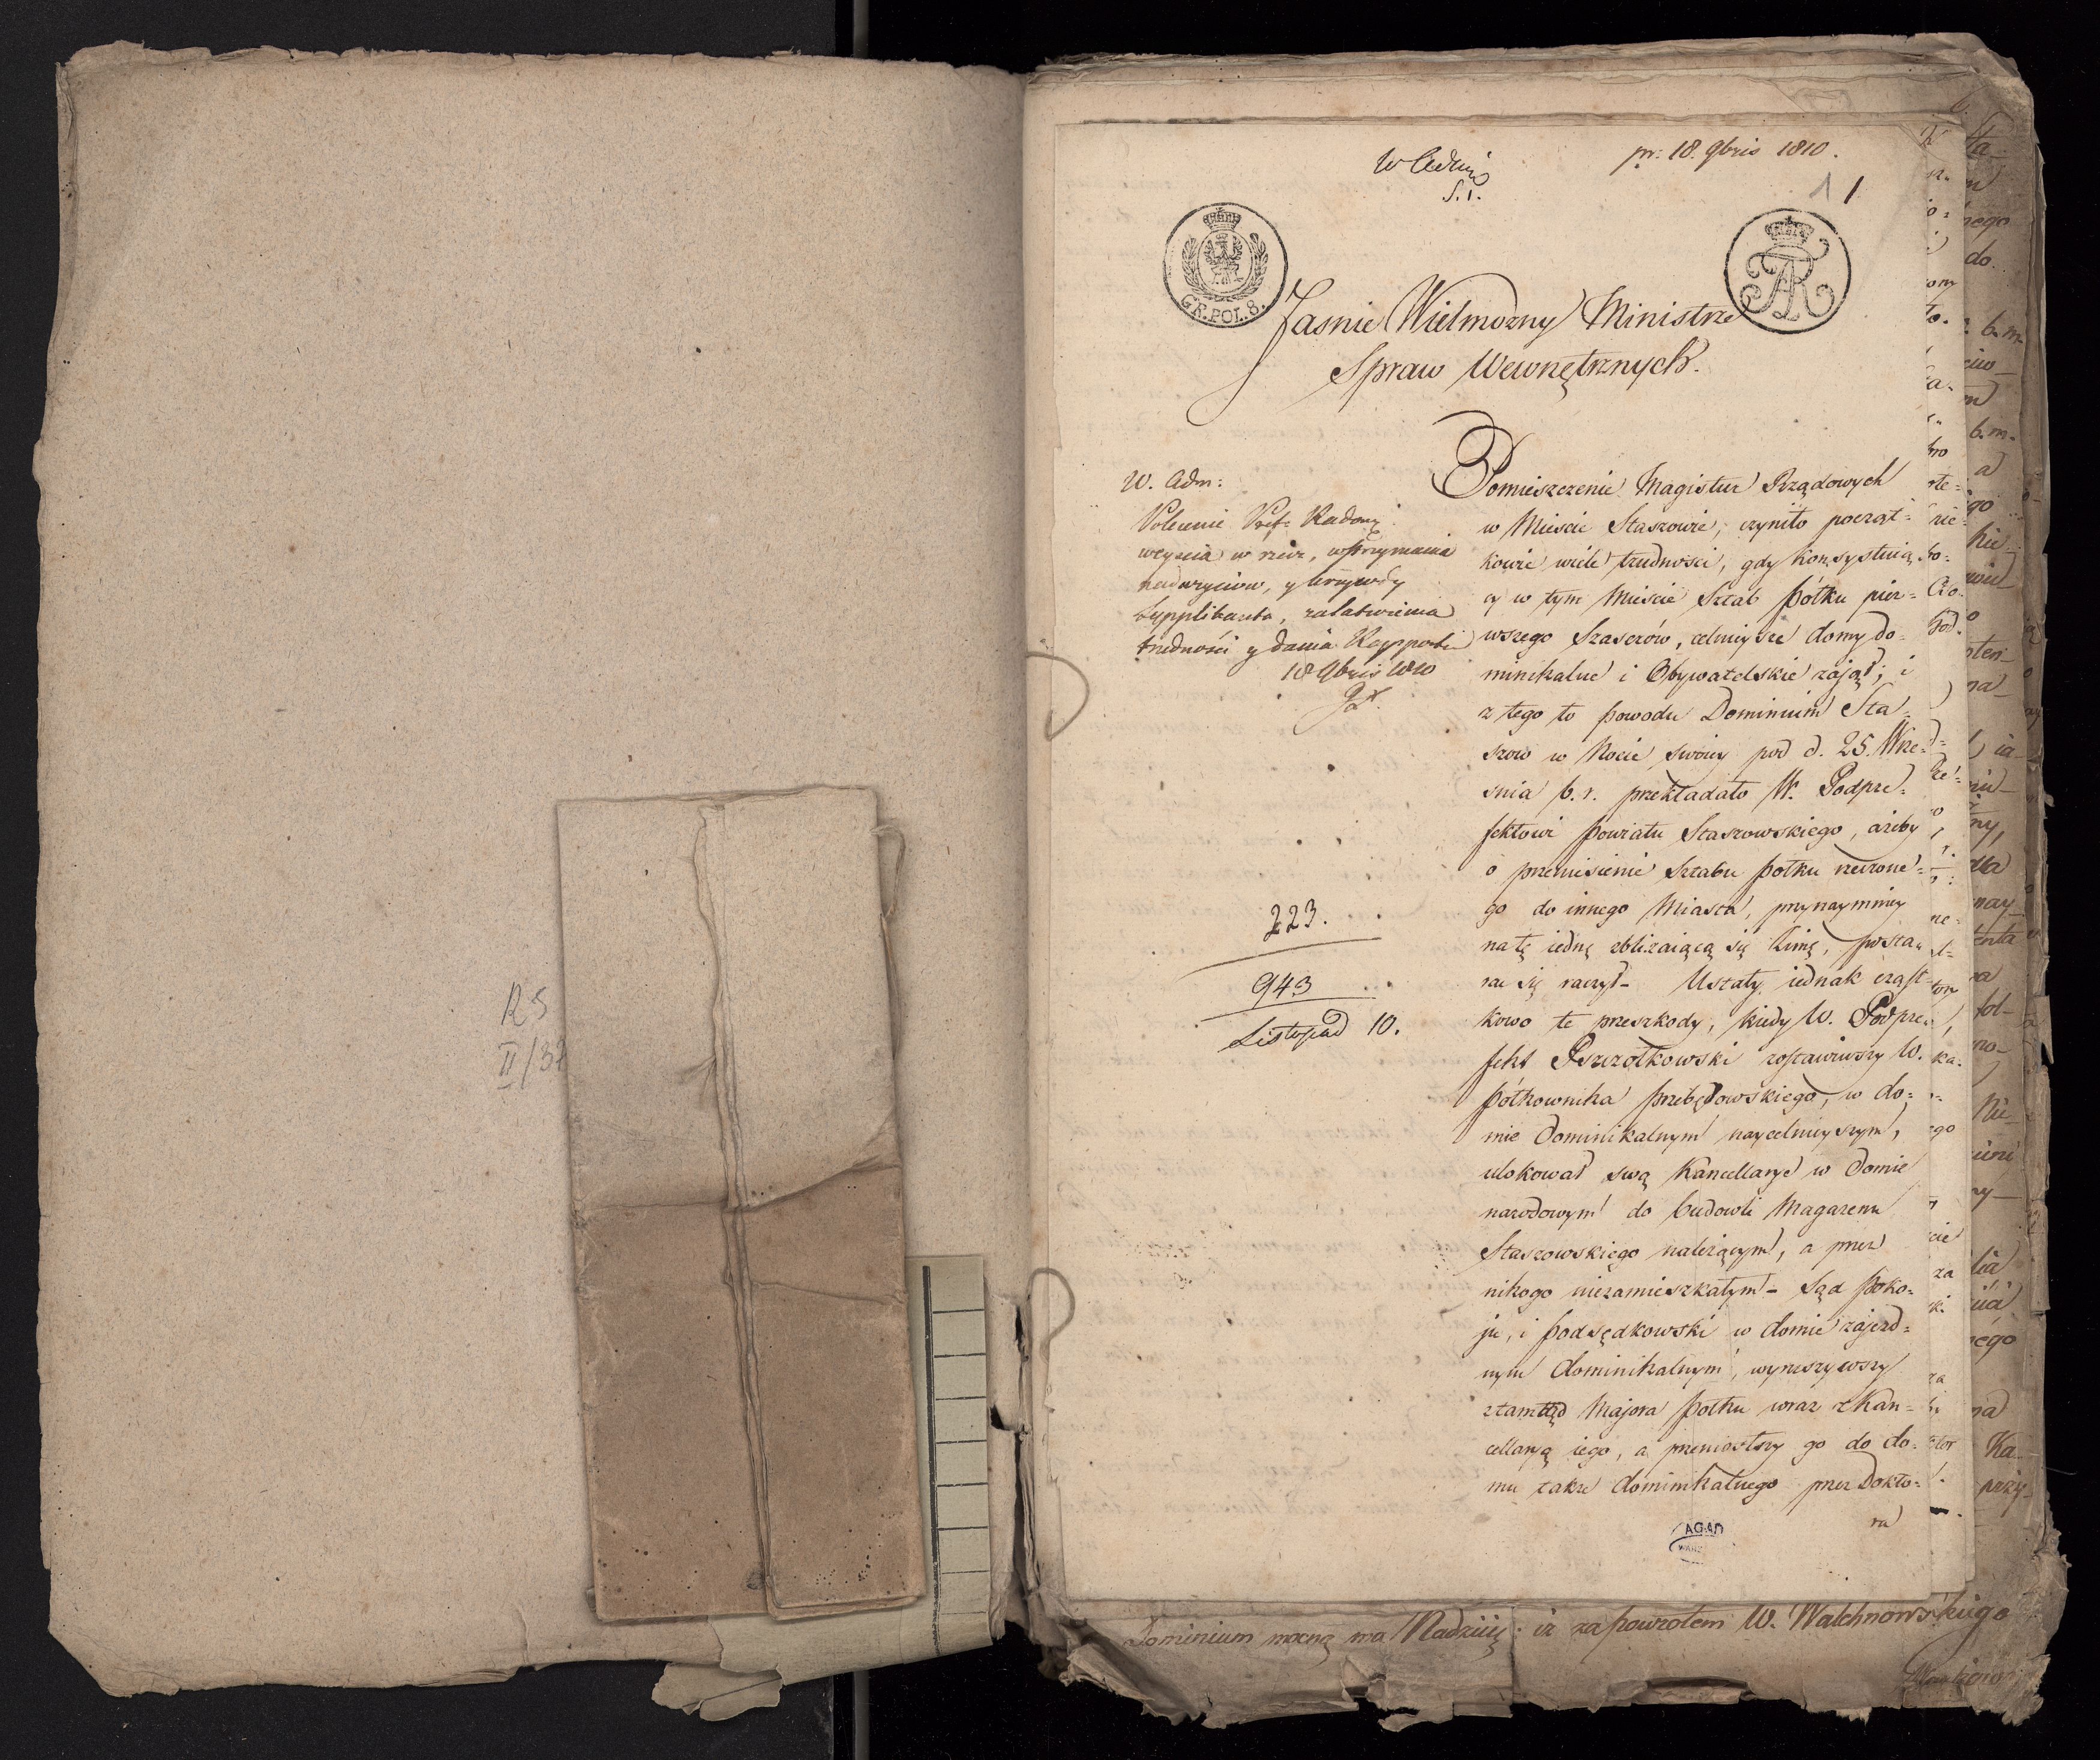 W Wydział
S. 1.
pr: 18. 9bris 1810.
1 1
GR. POL. 8.
AR
Jasnie Wielmożny Ministrze
Spraw Wewnętrznych.
W. Adm:
Polecenie Pref: Radom:
weyscia w rzecz, wstrzymania
nadużyciow, y krzywdy
Supplikanta, załatwienia
trudności y dania Rapportu
18 9bris 1810
Pomieszczenie Magistur Rządowych
w Mieście Staszowie, czyniło począt=
kowie wiele trudności, gdy konsystuią
cy w tym Mieście Sztab półku pier=
wszego Szaserów, celnieysze domy do=
minikalne i Obywatelskie zajął; i
z tego to powodu Dominium Sta=
szow w Nocie swoiey pod d. 25. Wrze=
snia b. r. przekładało W. Podpre=
fektowi powiatu Staszowskiego, ażeby
o przeniesienie Sztabu półku rzeczone=
go do innego Miasta, przynaymniey
na tę iednę zbliżaiącą się Zimę, posta=
rac się raczył – Ustały iednak cząst=
kowo te przeszkody, kiedy W. Podpre=
fekt Pszczółkowski zostawiwszy W.
półkownika przebędowskiego, w do=
mie Dominikalnym naycelnieyszym,
ulokował swą Kancellaryę w Domie
narodowym do budowli Magazenu
Staszowskiego należącym, a przez
nikogo niezamieszkałym – Sąd poko=
ju, i podsędkowski w domie zajezd=
nym dominikalnym, wyruszywszy
ztamtąd Majora półku wraz z Kan=
cellaryą iego, a przeniosłszy go do do=
mu także dominikalnego przez Dokto=
ra
223.
943
Listopad 10.
RS
II/37
AGAD
WARSZ
Dominium mocną ma Nadzieię iż za powrotem W. Walchnowskiego